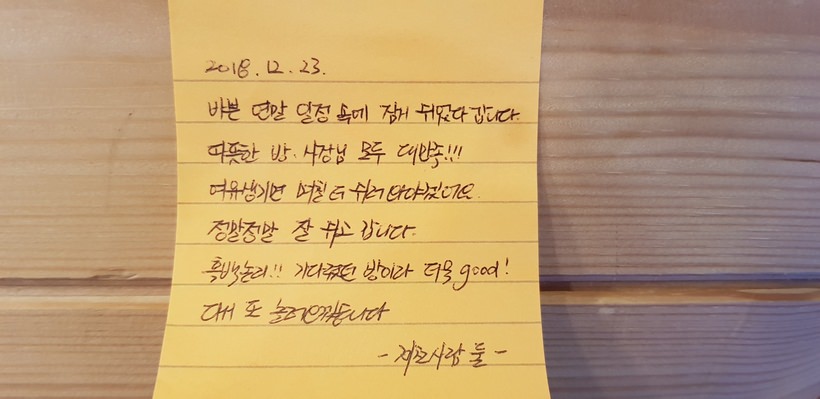 2018. 12. 23.
바쁜 연말 일정 속에 잠시 쉬었다 갑니다.
따뜻한 방. 사장님 모두 대만족!!!
여유생기면 며칠 더 쉬러 와야겠어요.
정말정말 잘 쉬고 갑니다.
흑백논리!! 기다렸던 방이라 더욱 good!
다시 또 놀러오겠습니다
- 사람 둘 -